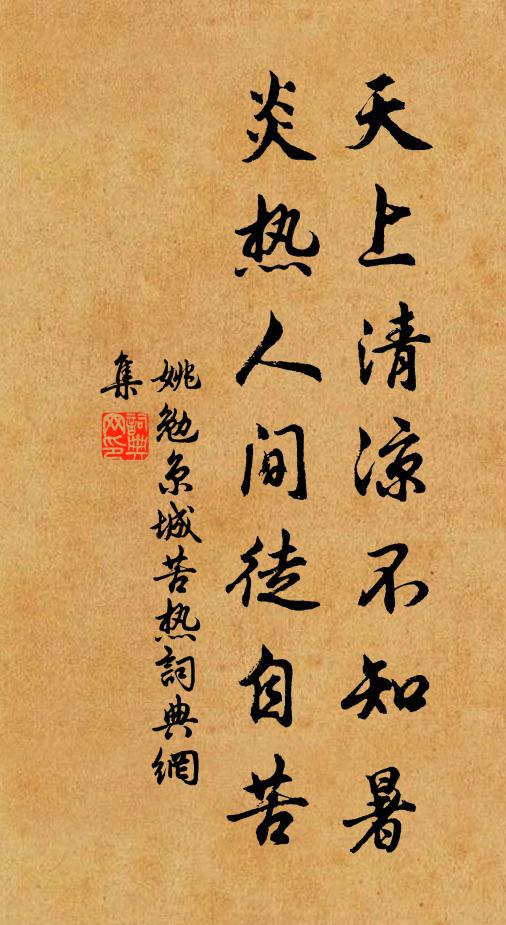 天上清凉不知暑
炎热人间徒自苦
姚勉京城苦热詞典網
集
詞典网印